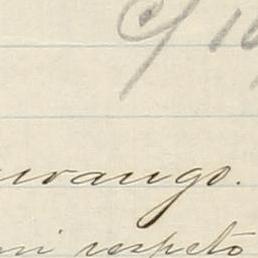 c/ 10
urango.
mi respeto